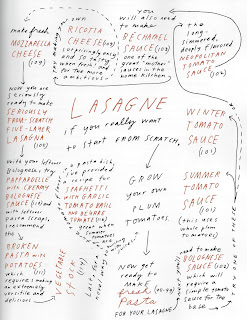 make fresh
MOZZARELLA
CHEESE
make your own
RICOTTA
CHEESE
surprisingly easy
and so tasty
or for the more
ambitious-
you
will also need
to make
BÉCHAMEL
SAUCE
one of the
great "mother"
sauces in the
same kitchen
the
long-
simmered,
deeply flavored
NEOPOLITAN
TOMATO
SAUCE
Now you are
seriously
ready to make
SERIOUSLY
FROM-SCRATCH
FIVE-LAYER
LASAGNA
LASAGNE
if you really want
to start FROM SCRATCH,
WINTER
TOMATO
SAUCE
with your leftover
Bolognese, try
PAPPARDELLE
with CREAMY
BOLOGNESE
SAUCE
with leftover
pasta scraps,
recommend
the
BROKEN
PASTA with
POTATOES
which
requires making
an extremely
versatile and
delicious
VEGETABLE
STOCK
a pasta dish,
I've provided
a recipe for
SPAGHETTI
with GARLIC
TOMATO
GROW
your own
PLUM
TOMATOES
SUMMER
TOMATO
SAUCE
(this uses
whole plum
tomatoes)
ONE OF THESE
need to make
BOLOGNESE
SAUCE
which will
require a
simple tomato
sauce for the
base
Now get
ready to
MAKE
fresh
Pasta
FOR YOUR LASAGNE!